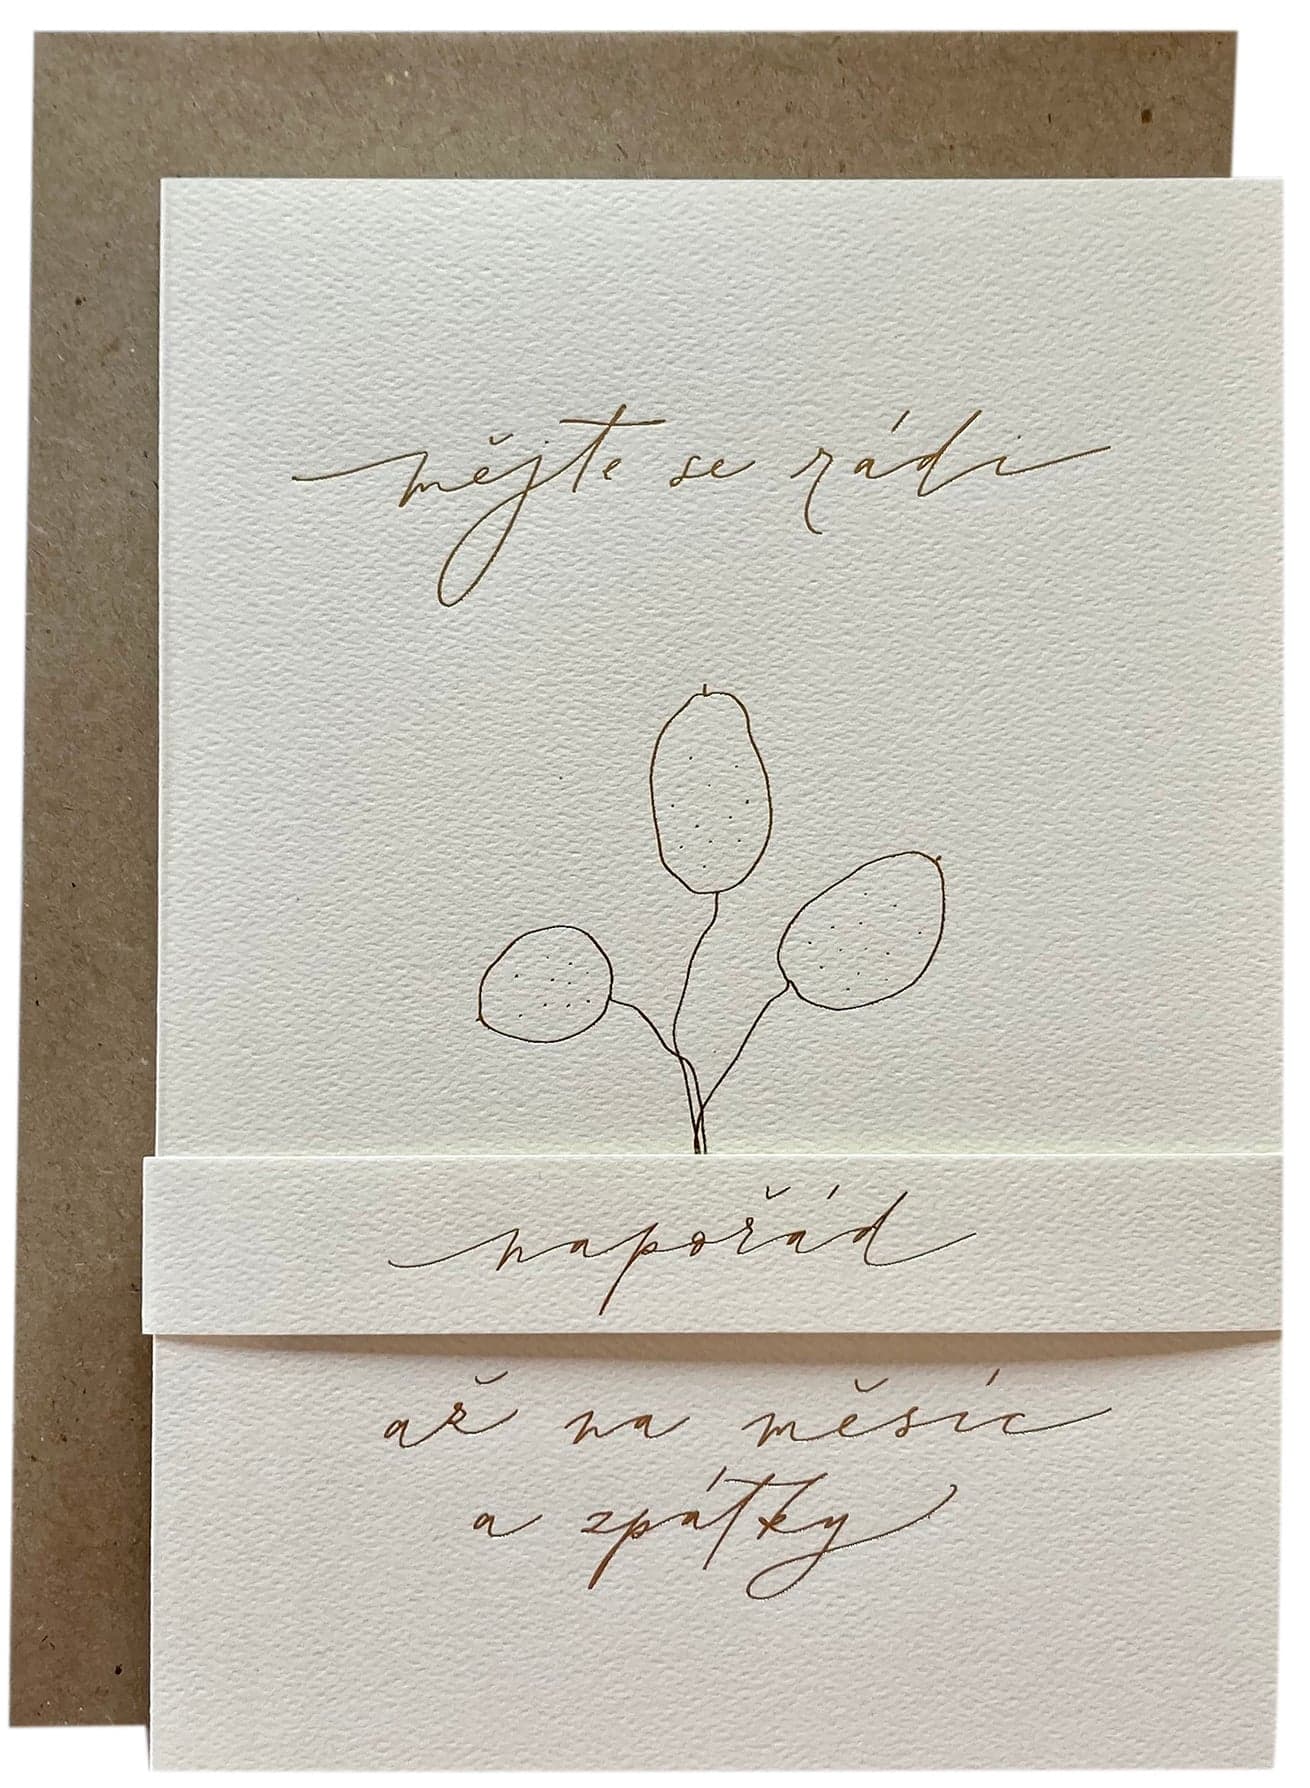 mějte se rádi
napořád
až na měsíc
a zpátky